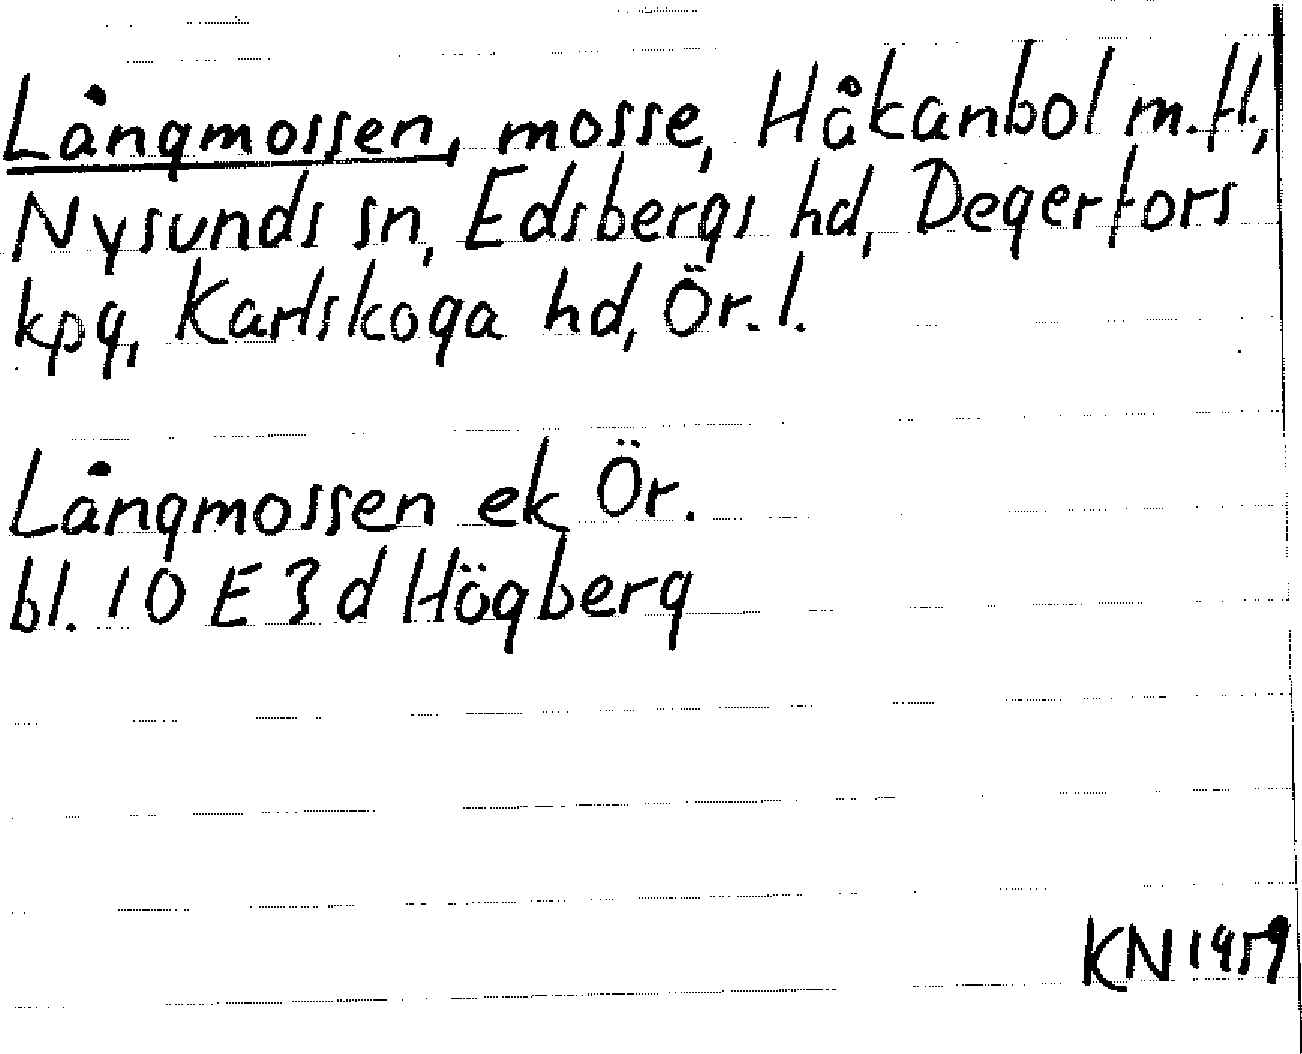 Långmossen, mosse, Håkanbol m.fl.,
Nysunds sn, Edsbergs hd, Degerfors
kpg, Karlskoga hd, Ör. l.
Långmossen ek Ör.
bl. 10 E 3 d Högberg
KN 1959